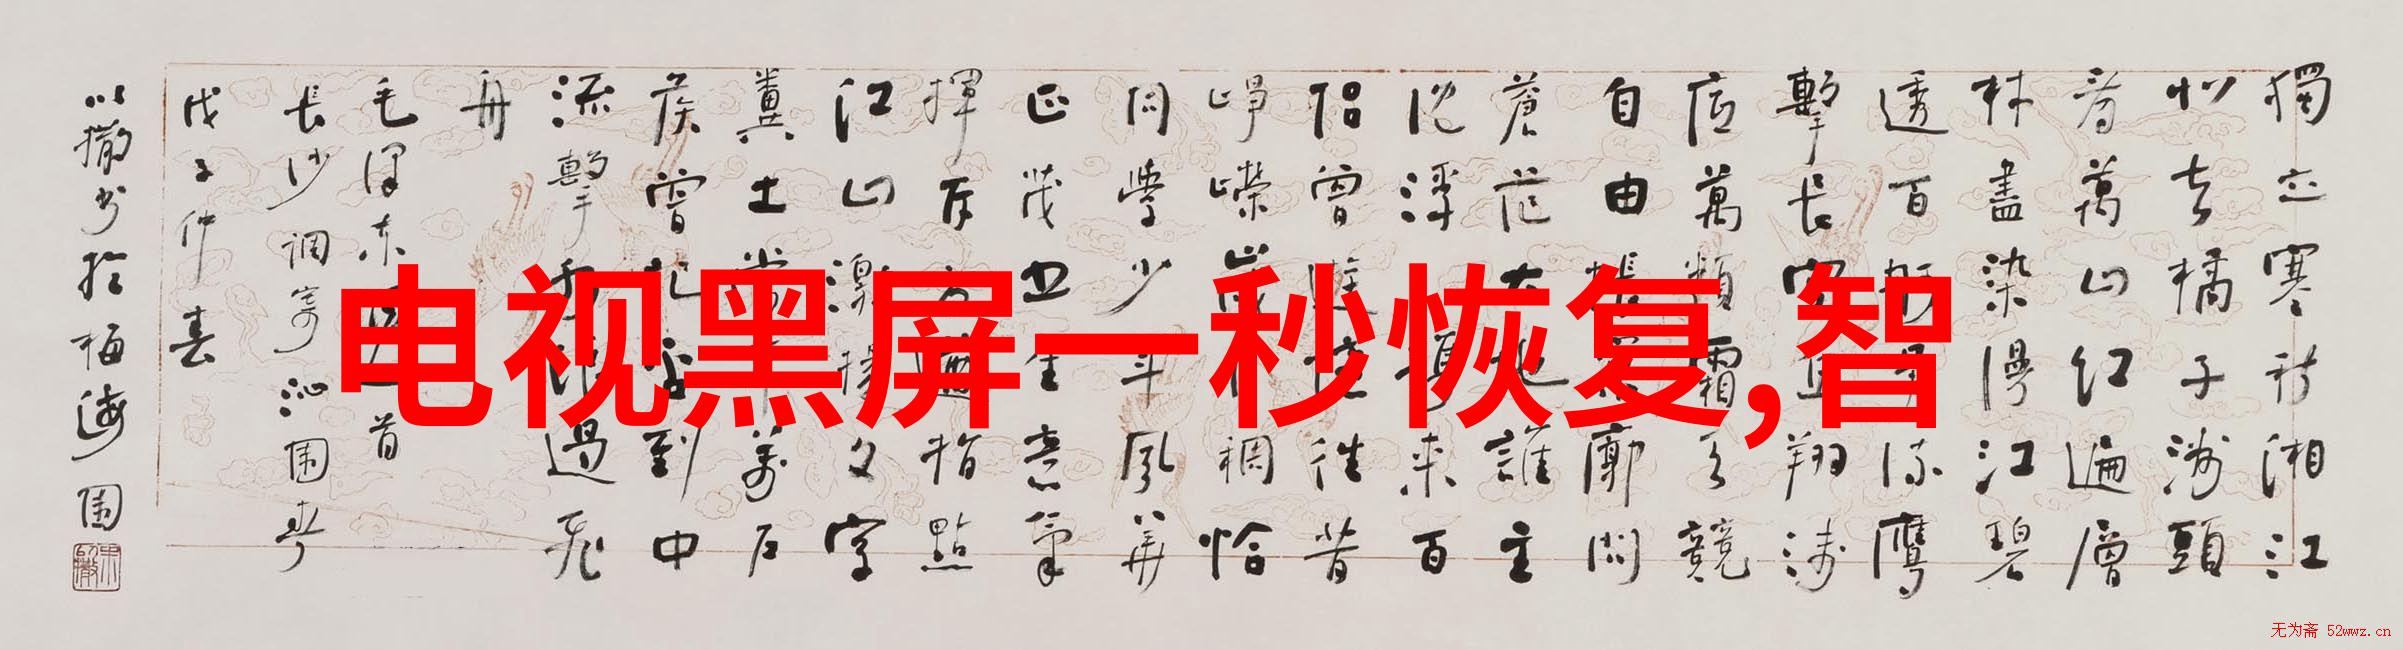 电视黑屏一秒恢复,智
獨立寒秋湘江
北去橘子洲頭
看萬山红遍層
林盡染漫江碧
透百流鷹
擊長翔淺
底萬類霜天競
自由廓問
蒼茫地誰主
沉浮携来百
侣曾往昔
崢嶸歲稠恰
同學少年風華
正茂书生意氣
揮斥遒指點
江山激揚文字
糞土當年萬户
侯曾記否到中
流擊水遏飛
舟
毛澤东首
長沙調寄沁園春
戊子仲春
於梅海園
无为斋 52wwz.cn